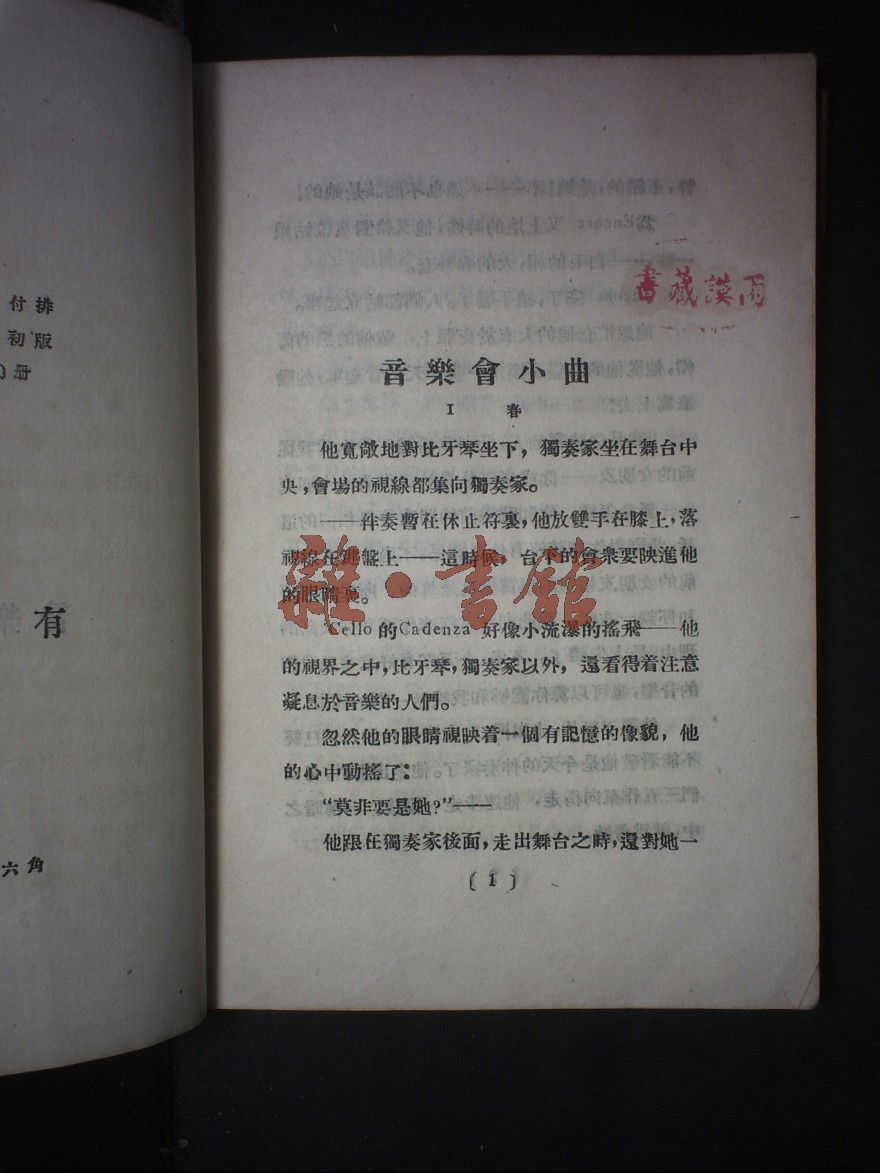 付排
初版
0册
有
六角
書藏謨丙
音樂會小曲
I 春
他寬敞地對比牙琴坐下，獨奏家坐在舞台中
央，會場的視線都集向獨奏家。
——伴奏暫在休止符裏，他放雙手在膝上，落
視線在跳盤上——這時候，台下的會衆要映進他
的眼睛裏。
Cello 的Cadenza 好像小流瀑的搖飛——他
的視界之中，比牙琴，獨奏家以外，還看得着注意
凝息於音樂的人們。
忽然他的眼睛視映着一個有記憶的像貌，他
的心中動搖了：
“莫非要是她？”——
他跟在獨奏家後面，走出舞台之時，還對她一
( 1 )
雜·書館